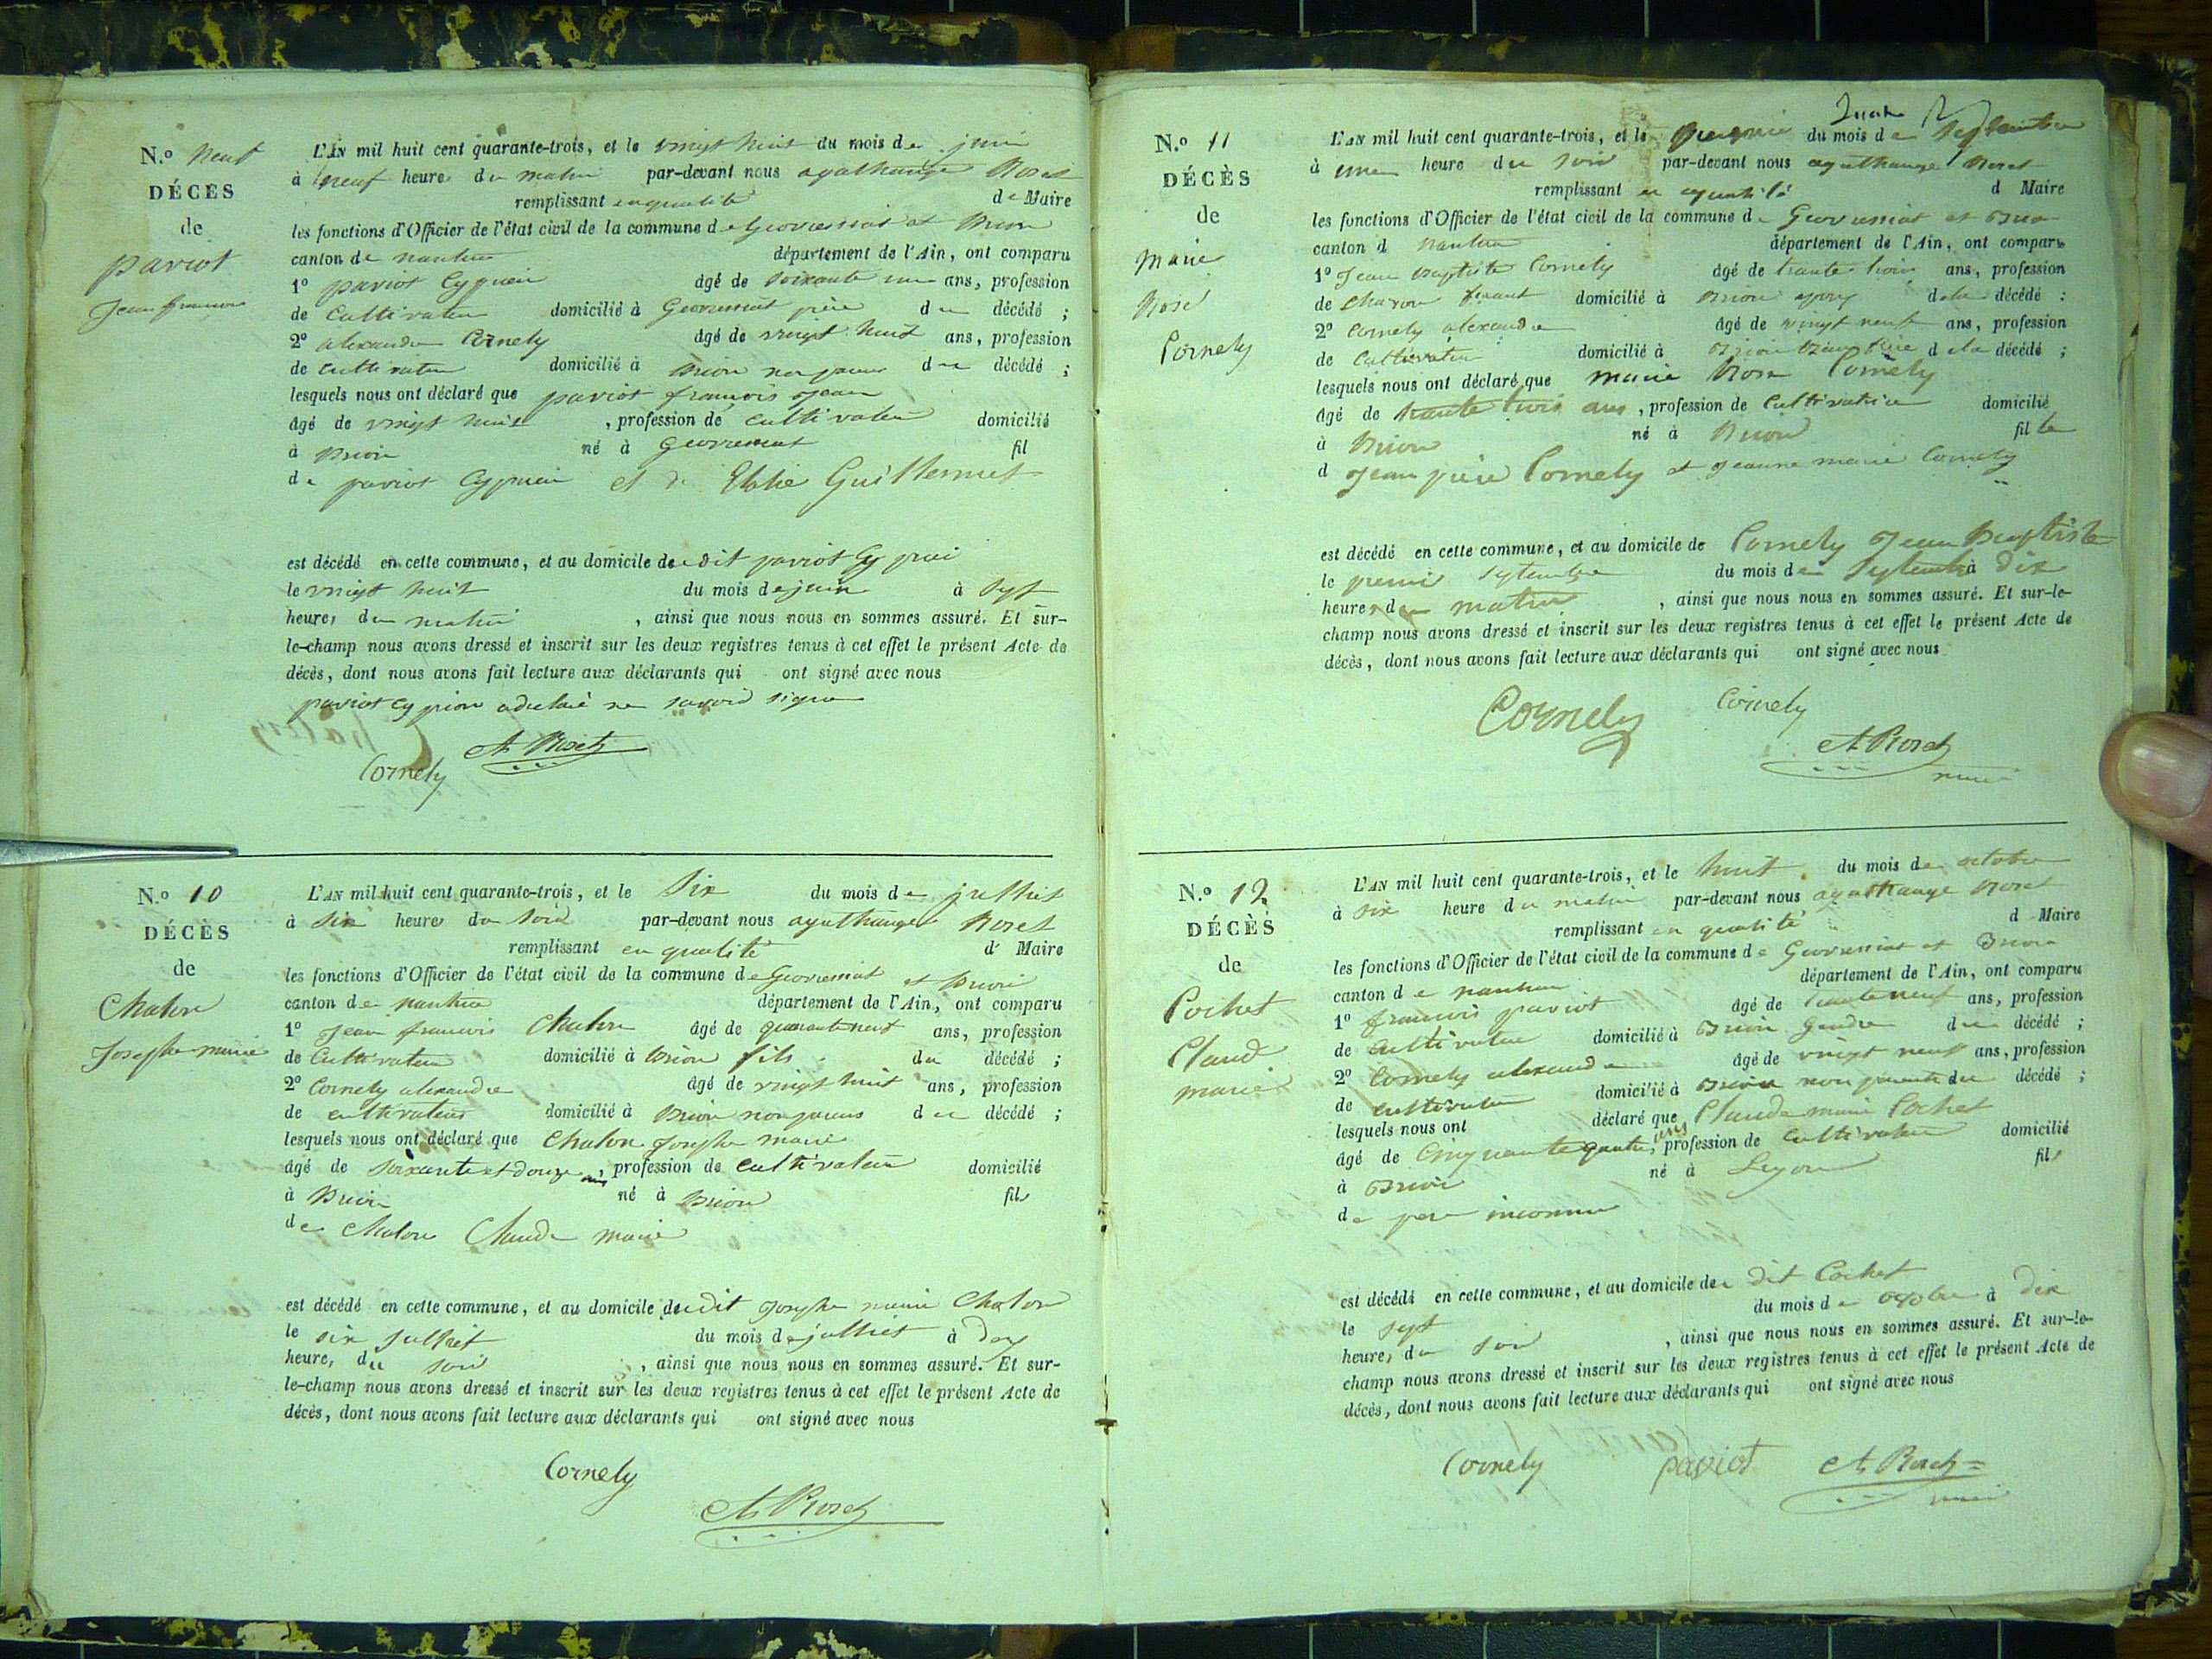 N.o neuf
DÉCÈS
de
paviot
Jean francois
L'AN mil huit cent quarante-trois, et le vingt huit du mois de juin
à neuf heures du matin par-devant nous agathange Roset
remplissant en qualité de Maire
les fonctions d'Officier de l'état civil de la commune de Geovressiat et Brion
canton de nantua département de l'Ain, ont comparu
1o paviot Cyprien âgé de soixante un ans, profession
de Cultivateur domicilié à Geovressiat père du décédé ;
2o alexandre Cornely âgé de vingt huit ans, profession
de cultivateur domicilié à Brion non parent du décédé ;
lesquels nous ont déclaré que paviot francois jean
âgé de vingt huit , profession de cultivateur domicilié
à Brion né à Geovressiat fil
de paviot Cyprien et de Guillermet
est décédé en cette commune, et au domicile de dit paviot Cyprien
le vingt huit du mois de juin à sept
heures du matin , ainsi que nous nous en sommes assuré. Et sur-
le-champ nous avons dressé et inscrit sur les deux registres tenus à cet effet le présent Acte de
décès, dont nous avons fait lecture aux déclarants qui ont signé avec nous
paviot cyprien a declaré ne savoir signer
A Roset
Cornely
N.o 10
DÉCÈS
de
Chaton
Josephe marie
L'AN mil huit cent quarante-trois, et le Six du mois de julliet
à six heure du soir par-devant nous agathange Roset
remplissant en qualité d Maire
les fonctions d'Officier de l'état civil de la commune de Geovressiat et Brion
canton de nantua département de l'Ain, ont comparu
1o Jean francois Chaton âgé de quarante neuf ans, profession
de Cultivateur domicilié à Brion fils du décédé ;
2o Cornely alexandre âgé de vingt huit ans, profession
de cultivateur domicilié à Brion non parent du décédé ;
lesquels nous ont déclaré que Chaton Josephe marie
âgé de soixante et douze ans, profession de cultivateur domicilié
à Brion né à Brion fils
de Chaton Claude marie
est décédé en cette commune, et au domicile dudit Josephe marie Chaton
le six julliet du mois de julliet à
heure, du soir , ainsi que nous nous en sommes assuré. Et sur-
le-champ nous avons dressé et inscrit sur les deux registres tenus à cet effet le présent Acte de
décès, dont nous avons fait lecture aux déclarants qui ont signé avec nous
Cornely
A Roset
N.o 11
DÉCÈS
de
Marie
Rose
Cornely
L'AN mil huit cent quarante-trois, et le du mois de septembre
à une heure du soir par-devant nous agathange Roset
remplissant en qualité d Maire
les fonctions d'Officier de l'état civil de la commune de Geovressiat et Brion
canton d nantua département de l'Ain, ont comparu
1o Jean Baptiste Cornely âgé de trante trois ans, profession
de Charon domicilié à Brion epoux dela décédé :
2o Cornely alexandre âgé de vingt neuf ans, profession
de Cultivateur domicilié à Brion dela décédé ;
lesquels nous ont déclaré que marie Rose Cornely
âgé de trante trois ans, profession de Cultivatrice domicilié
à Brion né à Brion fille
d Jean pière Cornely et Jeanne marie Cornely
est décédé en cette commune, et au domicile de Cornely Jean Baptiste
le premier septembre du mois de septembre à Dix
heures du matin , ainsi que nous nous en sommes assuré. Et sur-le-
champ nous avons dressé et inscrit sur les deux registres tenus à cet effet le présent Acte de
décès, dont nous avons fait lecture aux déclarants qui ont signé avec nous
Cornely Cornely
A Roset
maire
N.o 12
DÉCÈS
de
Cochet
Claud
marie
L'AN mil huit cent quarante-trois, et le huit du mois de octobre
à six heure du matin par-devant nous agathange Roset
remplissant en qualité d Maire
les fonctions d'Officier de l'état civil de la commune de Geovressiat et Brion
canton de nantua département de l'Ain, ont comparu
1o francois paviot âgé de trante neuf ans, profession
de cultivateur domicilié à Brion Gendre du décédé ;
2o Cornely alexandre âgé de vingt neuf ans, profession
de cultivateur domicilié à Brion non parent du décédé ;
lesquels nous ont déclaré que Claude marie Cochet
âgé de Cinquante quatre ans, profession de Cultivateur domicilié
à Brion né à Leyon fils
de pere inconnu
est décédé en cette commune, et au domicile de dit Cochet
le sept du mois de octobre à dix
heures du soir , ainsi que nous nous en sommes assuré. Et sur-le-
champ nous avons dressé et inscrit sur les deux registres tenus à cet effet le présent Acte de
décès, dont nous avons fait lecture aux déclarants qui ont signé avec nous
Cornely paviot A Roset
maire